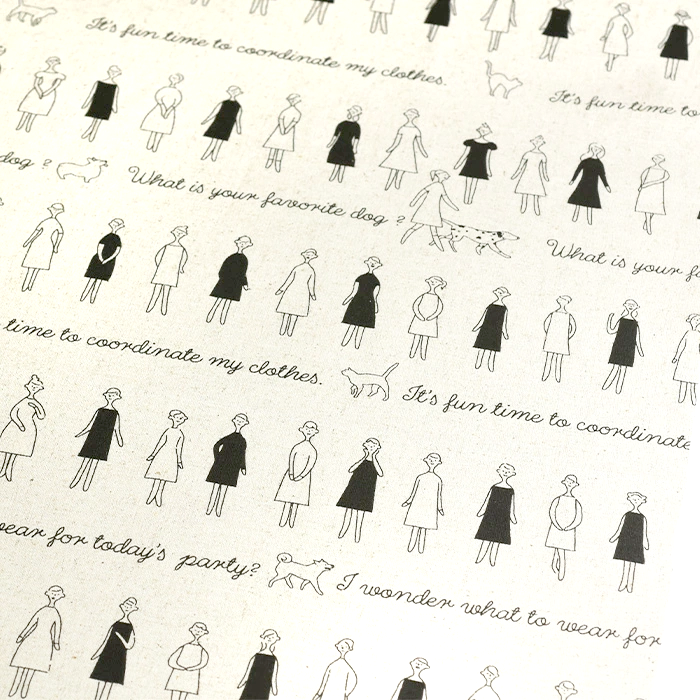 It's fun time to coordinate my clothes. It's fun time to
dog ? What is your favorite dog ? What is your
time to coordinate my clothes. It's fun time to coordinate
wear for today's party? I wonder what to wear for